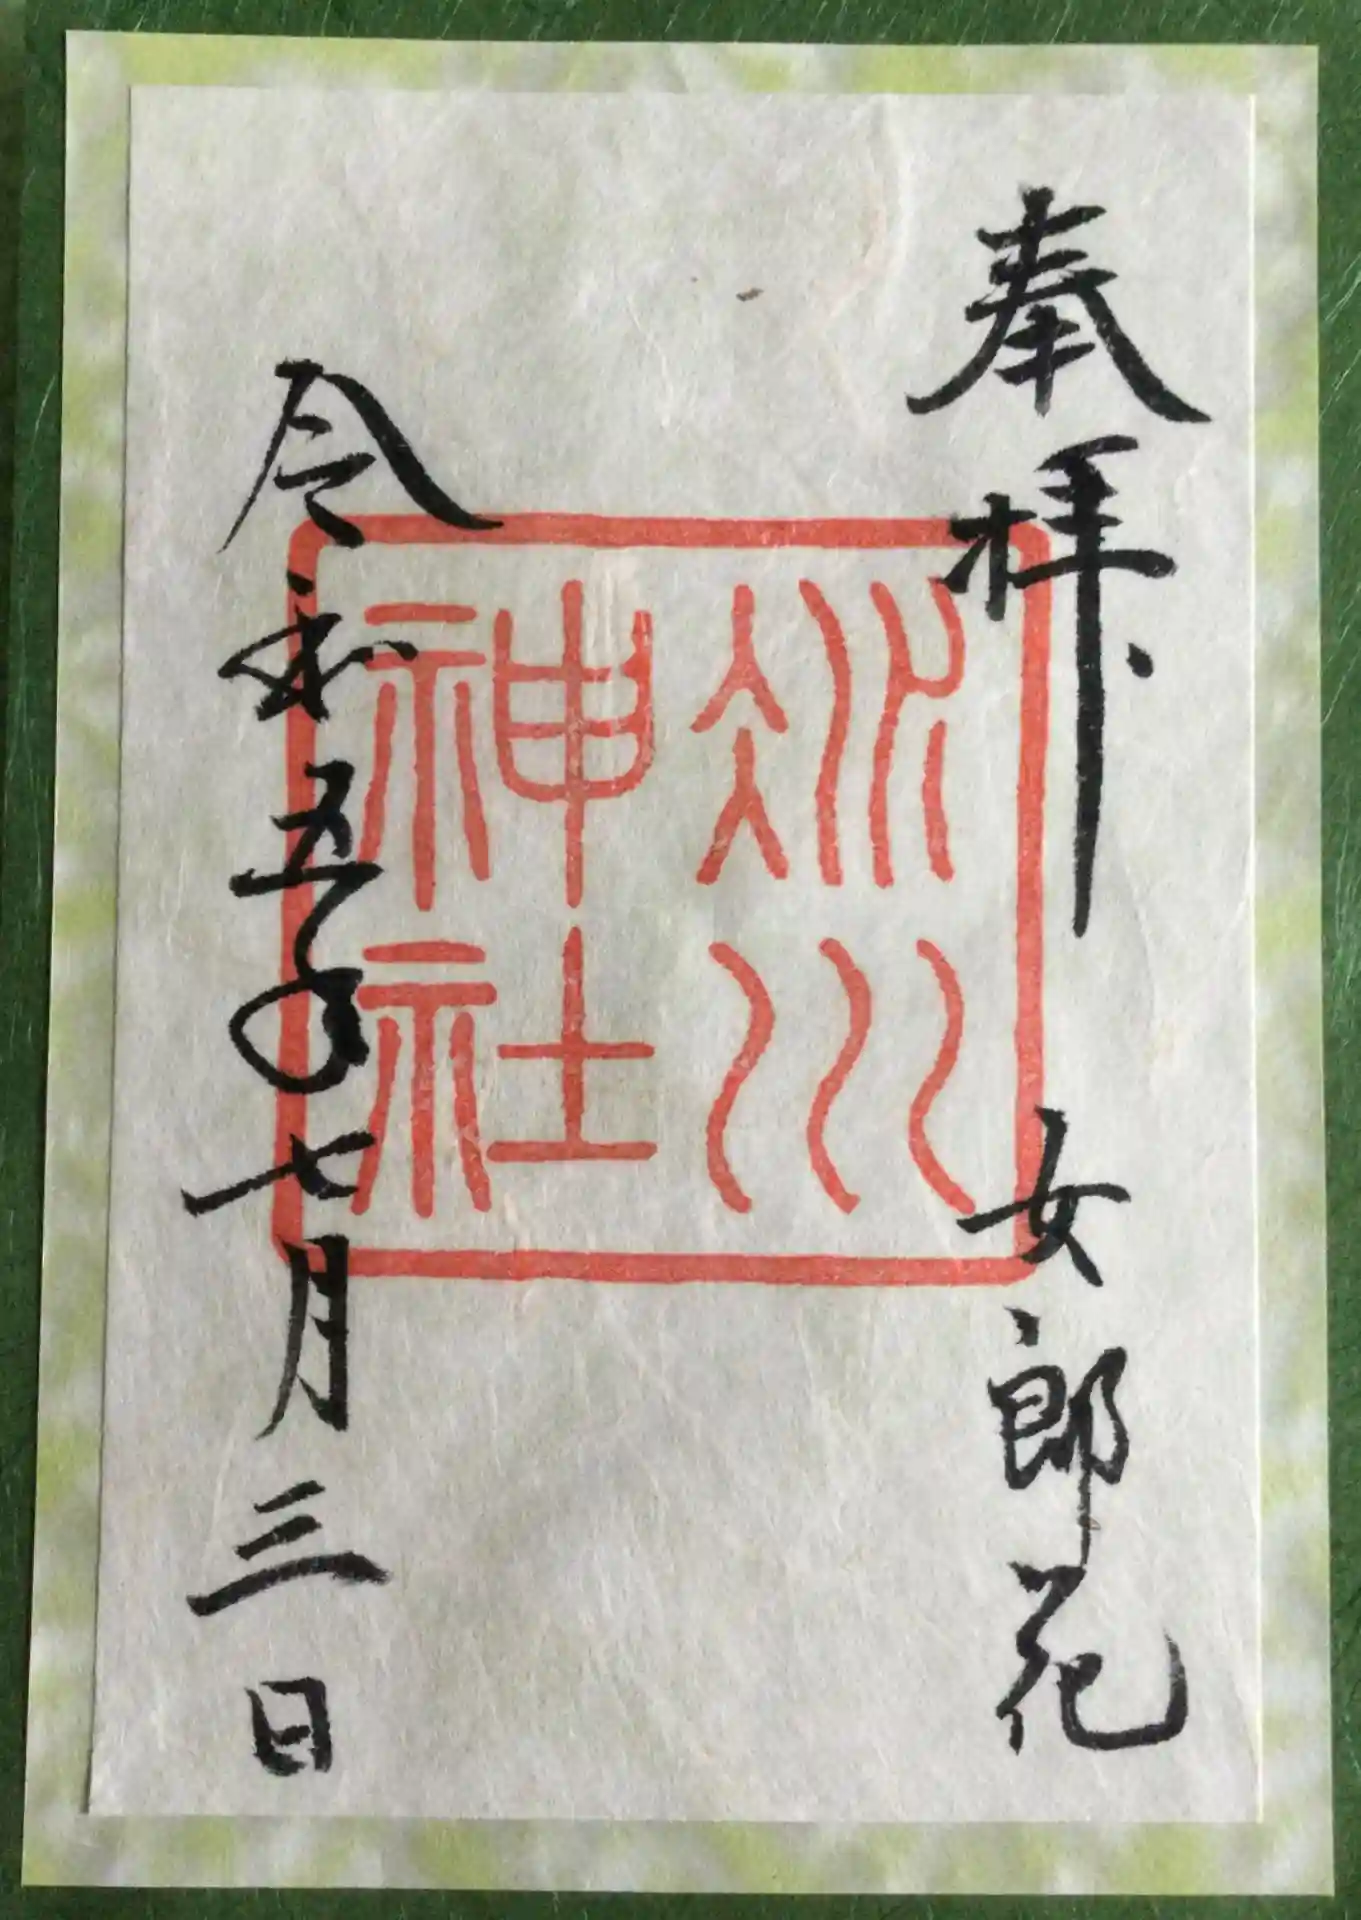 奉拝
女郎花
冰川
神社
令和五年七月三日